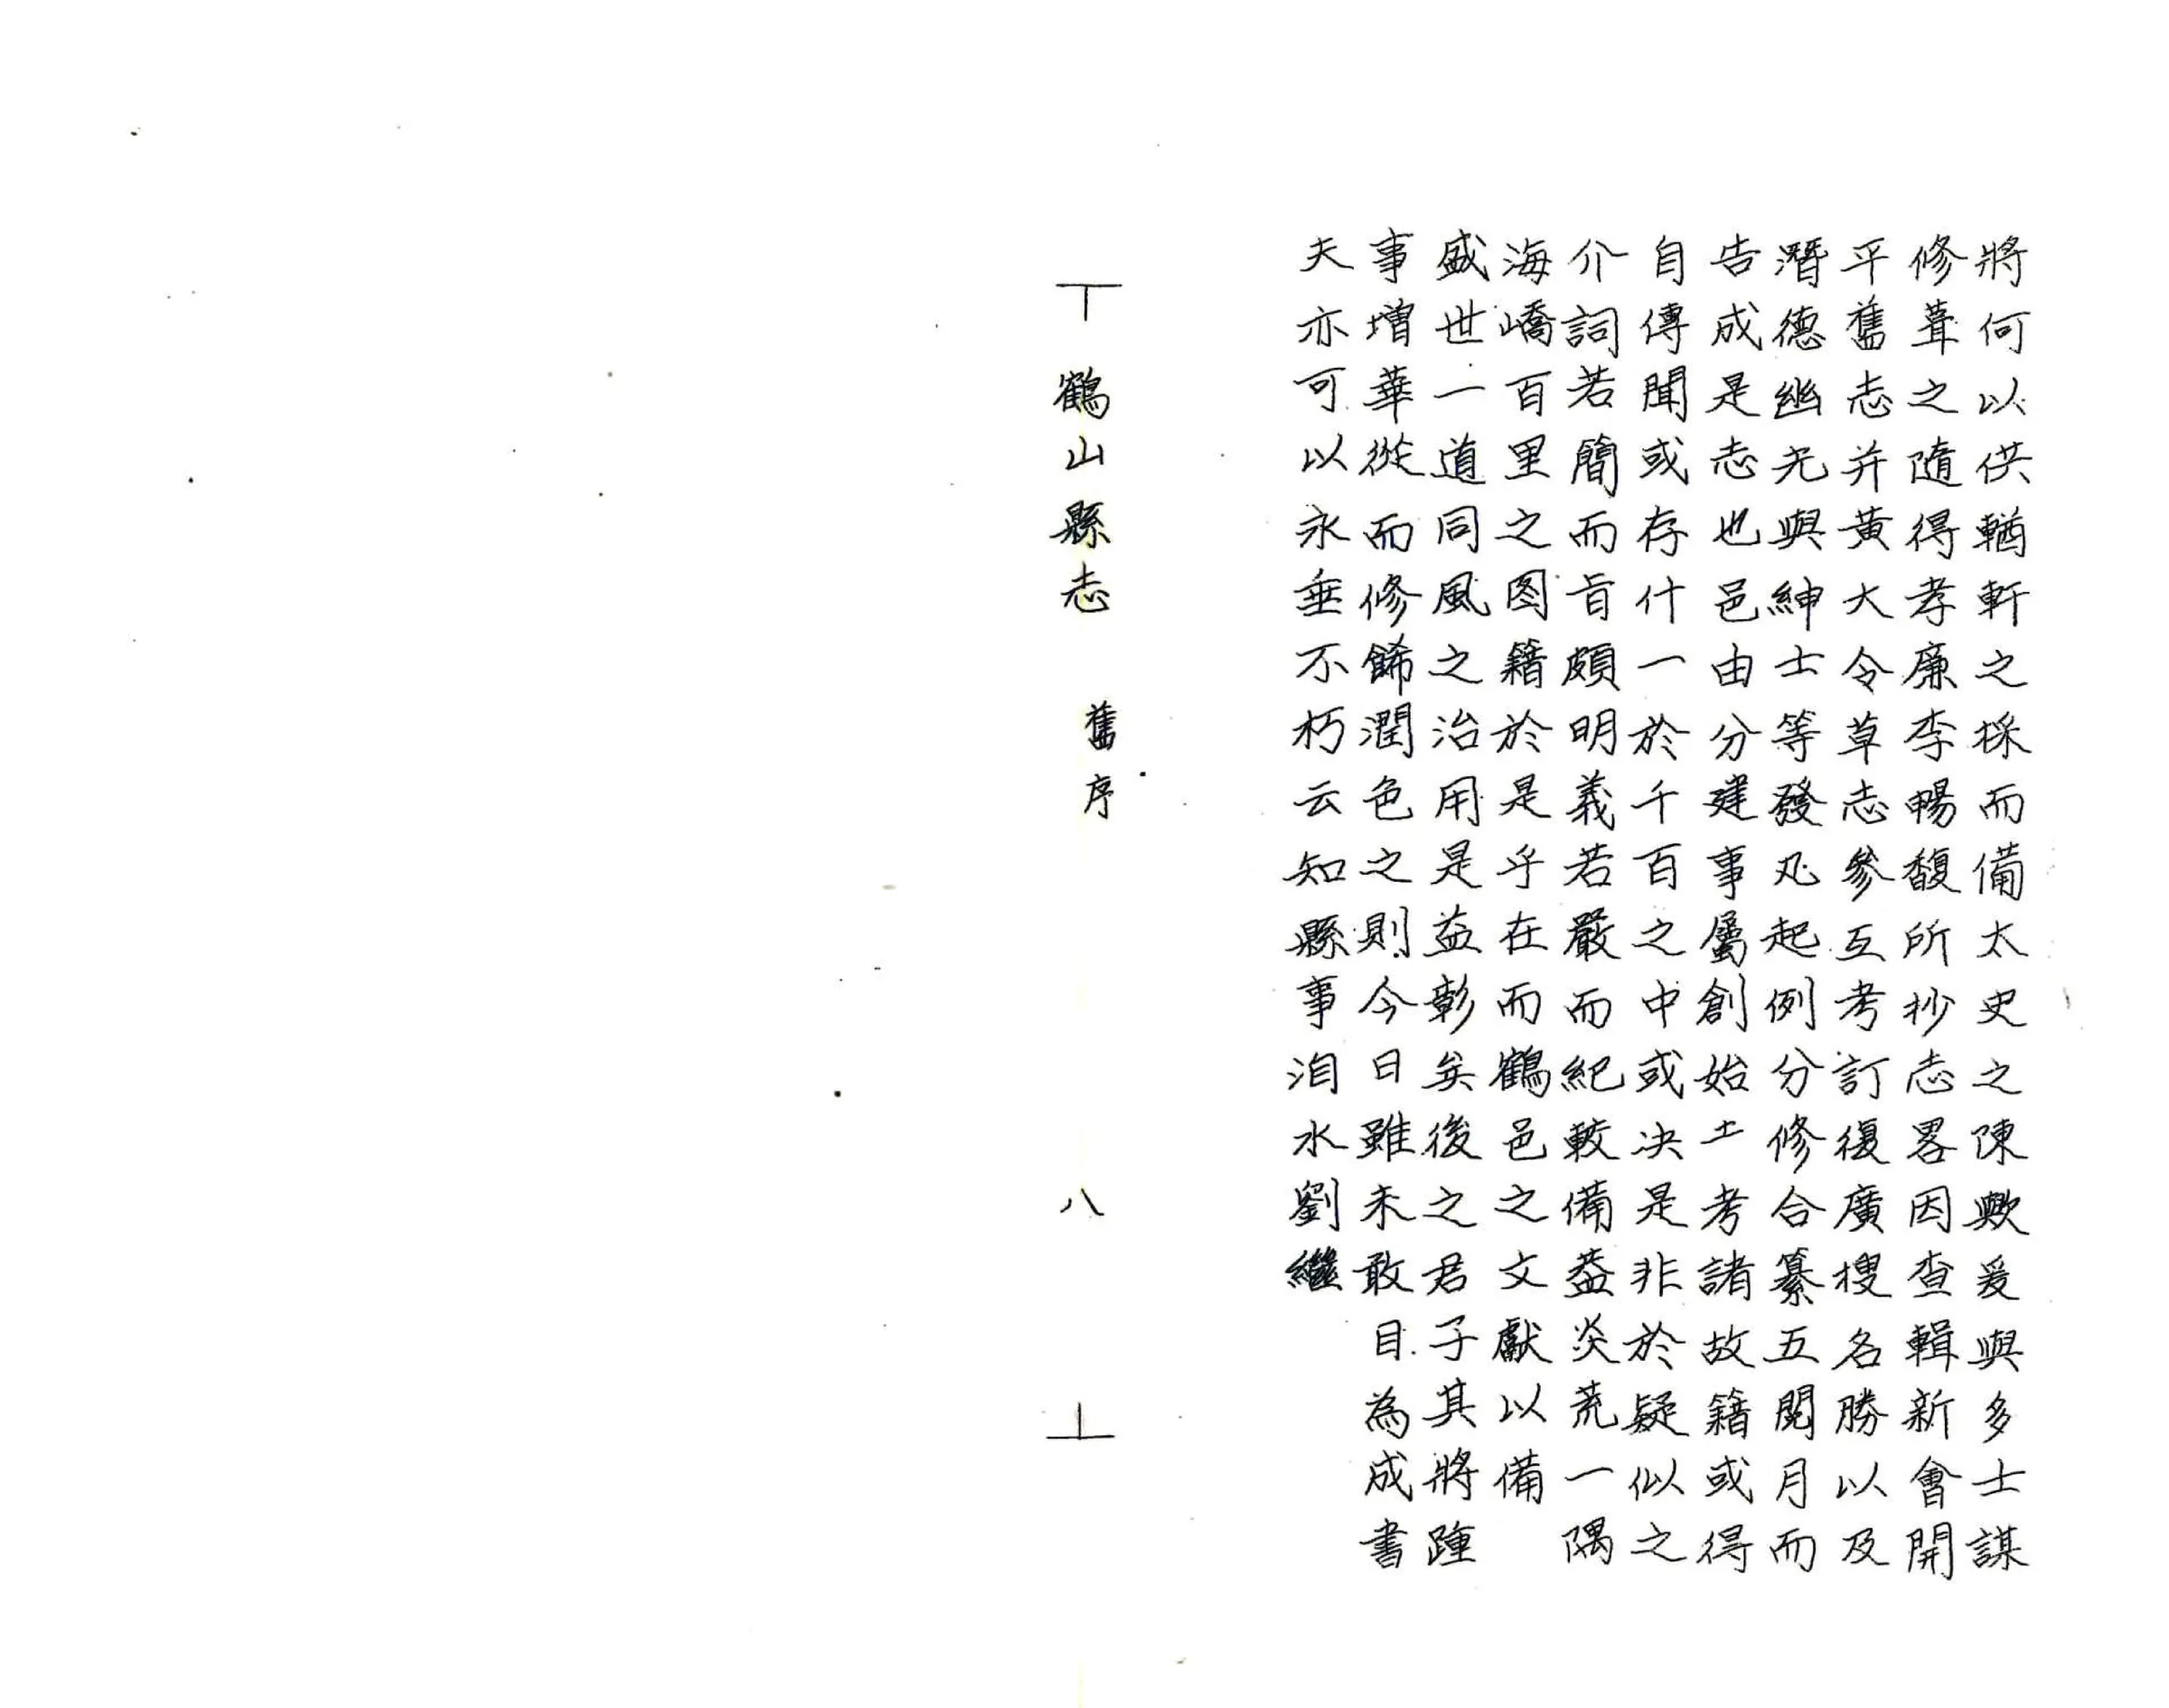 將何以供輶軒之採而備太史之陳歟爰與多士謀
修葺之隨得孝廉李暢馥所抄志畧因查輯新會開
平舊志并黃大令草志參互考訂復廣搜名勝以及
潛德幽光與紳士等發凡起例分修合纂五閱月而
告成是志也邑由分建事屬創始土考諸故籍或得
自傳聞或存什一於千百之中或决是非於疑似之
介詞若簡而旨頗明義若嚴而紀較備蓋炎荒一隅
海嶠百里之图籍於是乎在而鶴邑之文獻以備
盛世一道同風之治用是益彰矣後之君子其將踵
事增華從而修餙潤色之則今日雖未敢目為成書
夫亦可以永垂不朽云知縣事洎水劉繼
鶴山縣志 舊序 八